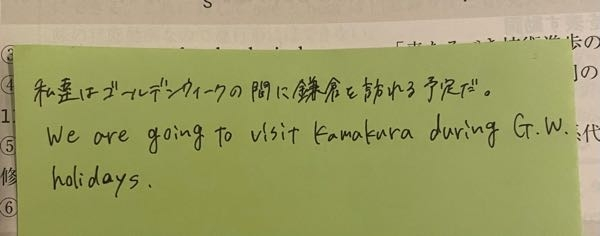 s
③
「
歩の
④
私達はゴールデンウィークの間に鎌倉を訪れる予定だ。
の
1.
We are going to visit Kamakura during G.W.
⑤
代
holidays.
修
⑥